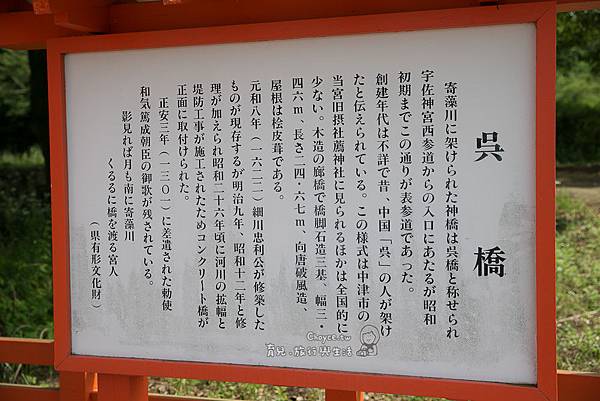 呉橋
寄藻川に架けられた神橋は呉橋と称せられ
宇佐神宮西参道からの入口にあたるが昭和
初期までこの通りが表参道であった。
創建年代は不詳で昔、中国「呉」の人が架け
たと伝えられている。この様式は中津市の
当宮旧摂社薦神社に見られるほかは全国的に
少ない。木造の廊橋で橋脚石造三基、幅三・
四六m、長さ二四・六七m、向唐破風造、
屋根は桧皮葺である。
元和八年（一六二二）細川忠利公が修築した
ものが現存するが明治九年、昭和十二年と修
理が加えられ昭和二十六年頃に河川の拡幅と
堤防工事が施工されたためコンクリート橋が
正面に取付けられた。
正安三年（一三〇一）に差遣された勅使
和気篤成朝臣の御歌が残されている。
影見れば月も南に寄藻川
くるるに橋を渡る宮人
（県有形文化財）
Choyce.tw
育兒．旅行與生活